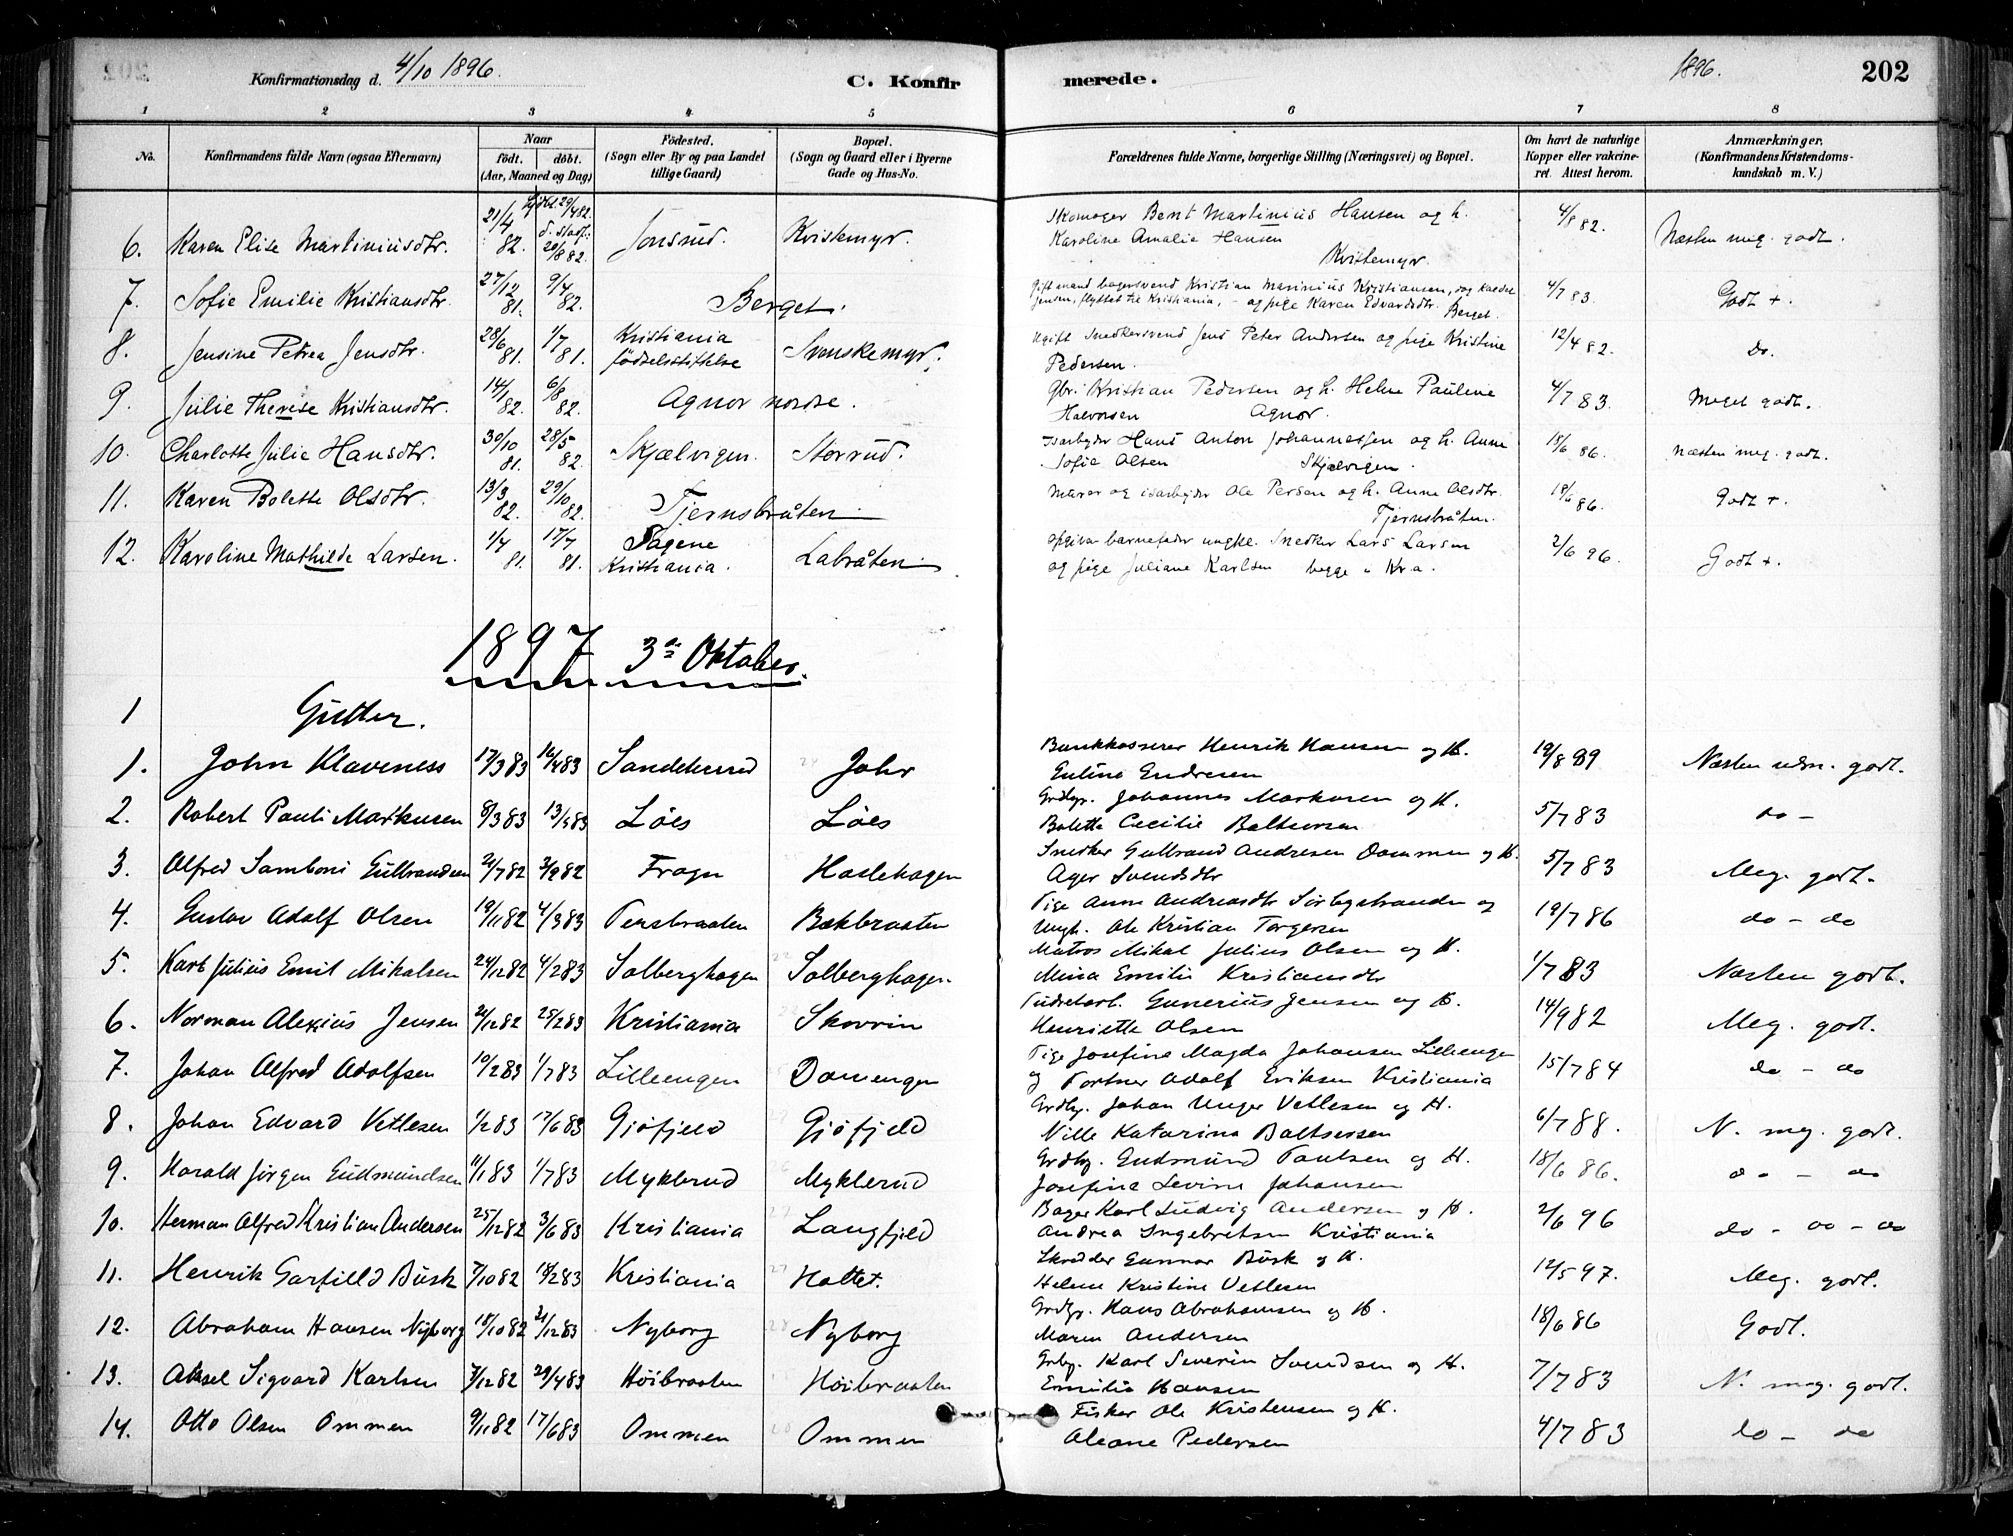 Konfirmationsdag d. 4/10 1896.
C. Konfirmerede.
1896.
202
1 2 3 4 5 6 7 8
No.
Konfirmandens fulde Navn (ogsaa Efternavn)
Naar
født. døbt.
(Aar, Maaned og Dag)
Fødested.
(Sogn eller By og paa Landet
tillige Gaard)
Bopæl.
(Sogn og Gaard eller i Byerne
Gade og Hus-No.
Forældrenes fulde Navne, borgerlige Stilling (Næringsvei) og Bopæl.
Om havt de naturlige
Kopper eller vakcine-
ret. Attest herom.
Anmærkninger.
(Konfirmandens Kristendoms-
kundskab m. V.)
6. Karen Elise Martiniusdtr. 21/4 82. 20/8 82. Jonsrud. Kvistemyr. Skomager Bent Martinius Hansen og h. 4/8 82. Næsten meg. godt.
Karoline Amalie Hansen
Kvistemyr.
7. Sofie Emilie Kristiansdtr. 27/12 81. 9/4 82. Berget. Gift mand bagersvend Kristian Marinius Kristiansen, 4/7 83. Godt +.
Jensen, flyttet til Kristiania, - og pige Karen Edvardsdtr. Berget.
8. Jensine Petrea Jensdtr. 28/6 81. 1/7 81. Kristiania fødselsstiftelse Svenskemyr. Ugift Snedkersvend Jens Peter Andersen og pige Kristine 12/4 82. Do.
Pedersen.
9. Julie Therese Kristiansdtr. 14/1 82. 6/8 82. Agnor nordre. Gbr. Kristian Pedersen og h. Helene Pauline 4/7 83. Meget godt.
Halvorsen Agnor.
10. Charlotte Julie Hansdtr. 30/10 81. 28/5 82. Skjælvigen. Storrud. Isarbejder Hans Anton Johannessen og h. Anne 18/6 86. Næsten meg. godt.
Sofie Olsen Skjælvigen.
11. Karen Bolette Olsdtr. 13/3 82. 29/10 82. Tjernsbråten. Murer og isarbejder Ole Persen og h. Anne Olsdtr. 18/6 86. Godt +.
Tjernsbråten.
12. Karoline Mathilde Larsen. 1/7 81. 17/7 81. Sagene Kristiania. Labråten. Opgiven barnefader ungk. Snedker Lars Larsen 2/6 96. Godt +.
og pige Juliane Karlsen begge i Kr.a.
1897 3die Oktober.
1 Gutter.
1. John Klaveness 17/3 83 16/4 83 Sandeherred Johr Bankkasserer Henrik Hansen og H. 19/8 89 Næsten udm. godt.
Gulina Endresen
2. Robert Pauli Markusen 8/3 83 13/5 83 Løes Løes Grdbr. Johannes Markusen og H. 5/7 83 do -
Bolette Cecilie Baltsersen
3. Alfred Samboni Gulbrandsen 21/7 82 3/9 82 Frogn Haslehagen Snedker Gulbrand Andresen Dammen og H. 5/7 83 Meg. godt.
Ager Svendsdtr
4. Gustav Adolf Olsen 19/11 82 4/3 83 Persbraaten Bækbraaten Pige Anne Andreasdtr Sørbystranden og 19/7 86 do - do
Ungk. Ole Kristian Torgersen
5. Karl Julius Emil Mikalsen 24/12 82 4/2 83 Solberghagen Solberghagen Matros Mikal Julius Olsen og H. 1/7 83 Næsten godt.
Mina Emilie Kristiansdtr
6. Norman Alexius Jensen 21/12 82 25/2 83 Kristiania Skovrin Gunerius Jensen og H. 14/9 82 Meg. godt.
Henriette Olsen
7. Johan Alfred Adolfsen 10/2 83 1/7 83 Lilleengen Damengen Pige Josefine Magda Johansen Lilleengen 15/7 84 do - do
og Portner Adolf Eriksen Kristiania
8. Johan Edvard Vetlesen 1/2 83 17/6 83 Gjøfjeld Gjøfjeld Grdbr. Johan Unger Vetlesen og H. 6/7 88. N. meg. godt.
Nille Katarina Baltsersen
9. Harald Jørgen Gudmundsen 11/1 83 1/7 83 Myklerud Myklerud Grdbr. Gudmund Paulsen og H. 18/6 86. do - do
Josefine Levine Johansen
10. Herman Alfred Kristian Andersen 25/12 82 3/6 83 Kristiania Langfjeld Bager Karl Ludvig Andersen og H. 2/6 96 do - do - do
Andrea Ingebretsen Kristiania
11. Henrik Garfield Busk 7/10 82 18/2 83 Kristiania Hattet. Skrædder Gunnar Busk og H. 12/5 97. Meg. godt.
Helene Kristine Vetlesen
12. Abraham Hansen Nyborg 18/10 82 31/12 83 Nyborg Nyborg Grdbr. Hans Abrahamsen og H. 18/6 86 Godt.
Maren Andersen
13. Aksel Sigvard Karlsen 7/12 82 29/4 83 Høibraaten Høibraaten Grbr. Karl Severin Svendsen og H. 7/7 83 N. meg. godt.
Emilie Hansen
14. Otto Olsen Ommen 9/11 82 17/6 83 Ommen Ommen Fisker Ole Kristensen og H. 4/7 83 do - do
Oleane Pedersen